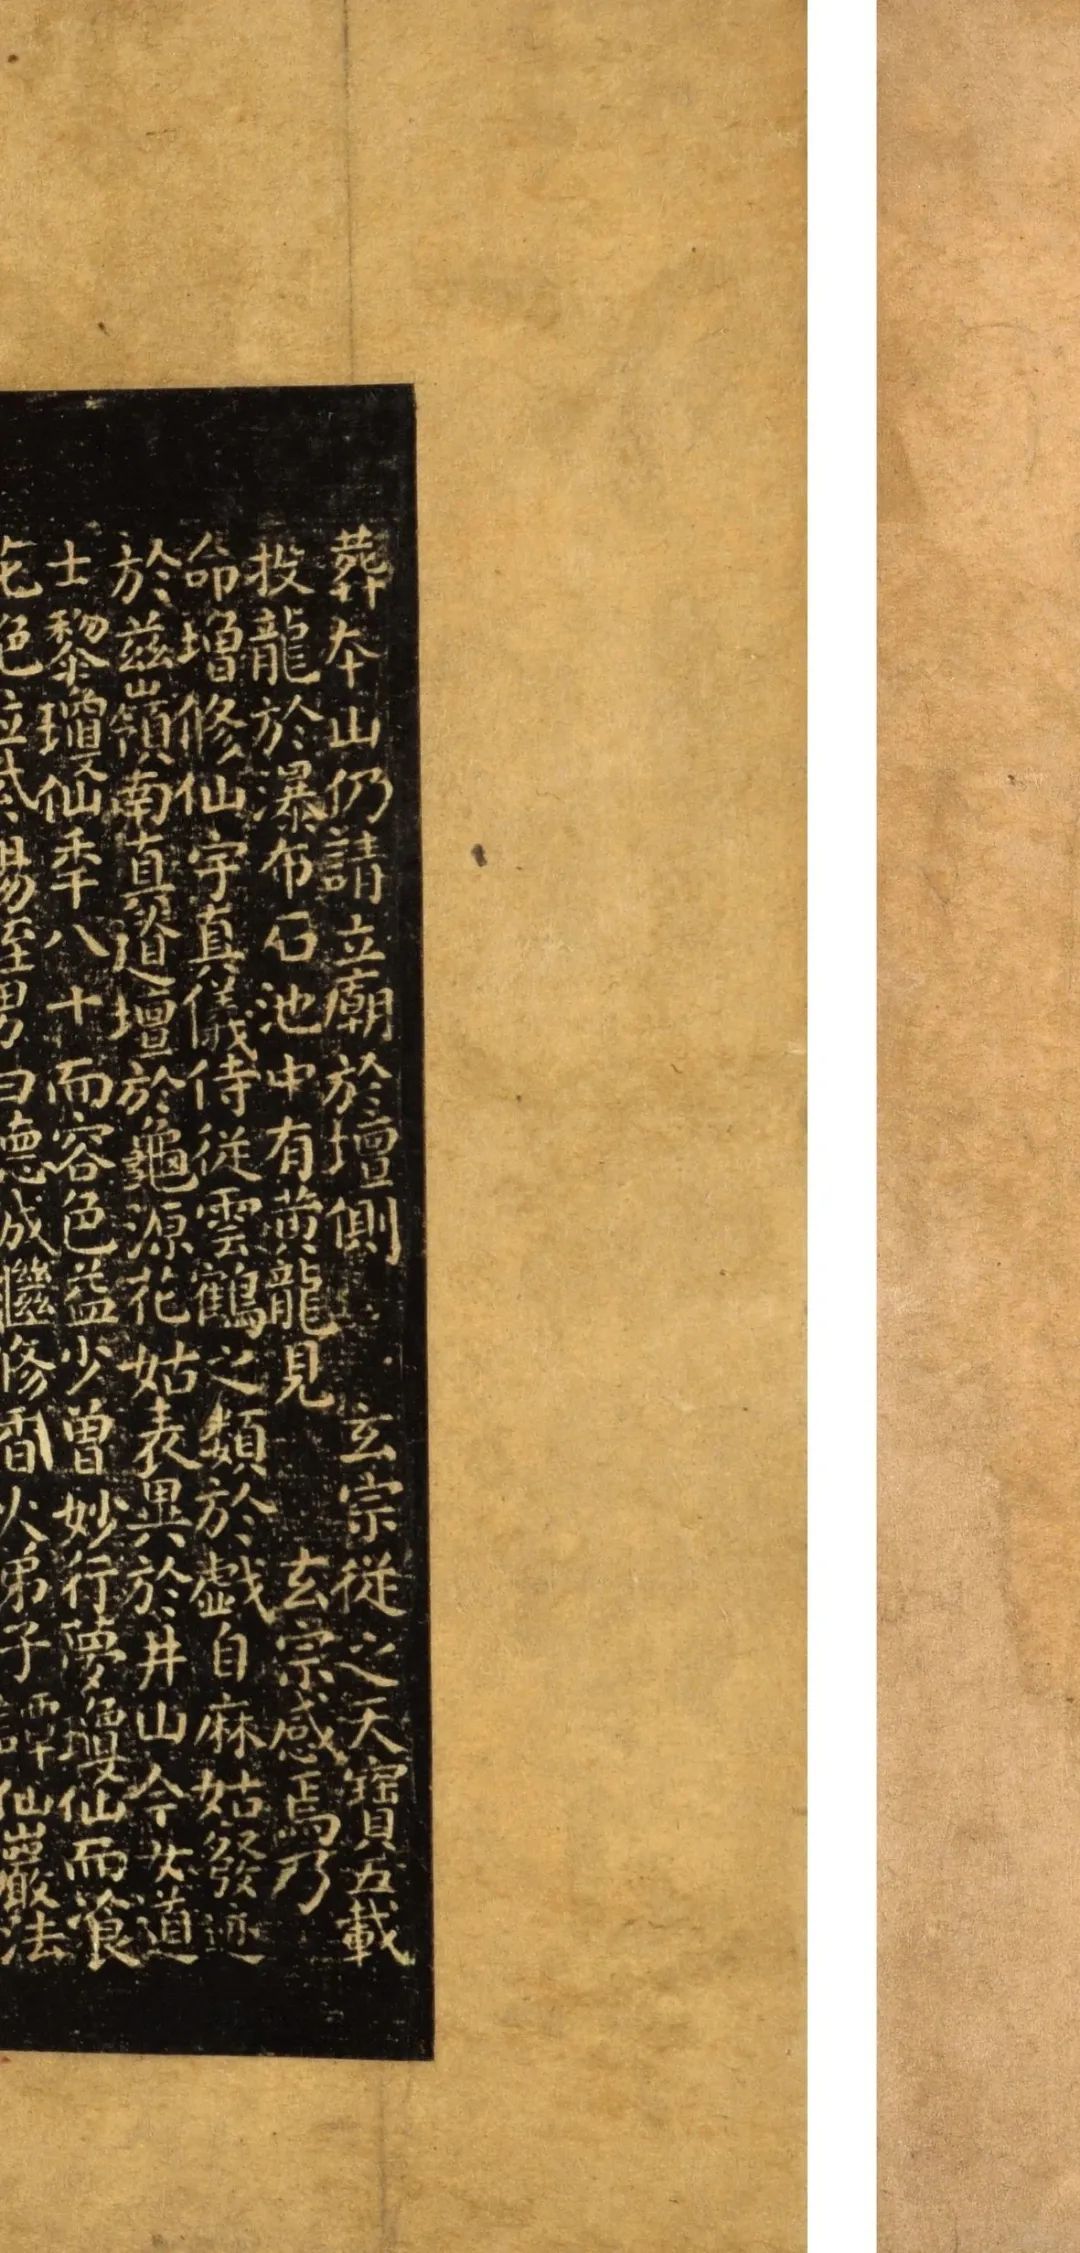 葬本山仍請立廟於壇側玄宗從之天寶五載
投龍於瀑布石池中有黃龍見玄宗感焉乃
命增修仙宇真儀侍從雲鶴之類於戲自麻姑發迹
於茲嶺南真遺壇於龜源花姑表異於井山今女道
士黎瓊仙年八十而容色益少曾妙行夢瓊仙而飡
花絕粒紫陽姪男曰德成繼修香火弟子譚仙巖法